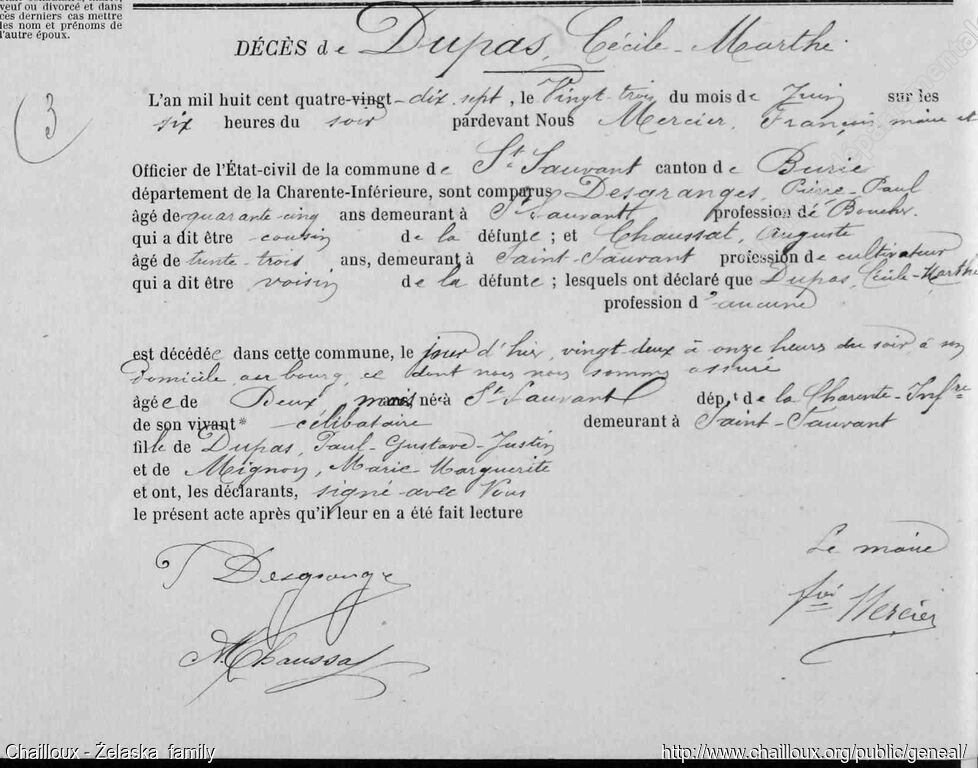 veuf ou divorcé et dans
ces derniers cas mettre
les nom et prénoms de
l'autre époux.
DÉCÈS de Dupas, Cécile-Marthe
3
L'an mil huit cent quatre-vingt-dix sept, le Vingt-trois du mois de Juin sur les
six heures du soir pardevant Nous Mercier, François, maire et
Officier de l'État-civil de la commune de St Sauvant canton de Burie
département de la Charente-Inférieure, sont comparus Desgranges, Pierre-Paul
âgé de quarante-cinq ans demeurant à St Sauvant profession de Boucher.
qui a dit être cousin de la défunte ; et Chaussat, Auguste
âgé de trente-trois ans, demeurant à Saint-Sauvant profession de cultivateur
qui a dit être voisin de la défunte ; lesquels ont déclaré que Dupas, Cécile-Marthe
profession d'aucune
est décédée dans cette commune, le jour d'hier, vingt-deux à onze heures du soir, à son
domicile, au bourg, ce dont nous nous sommes assuré
âgée de Deux mois née à St Sauvant dépt de la Charente-Infre
de son vivant* célibataire demeurant à Saint-Sauvant
fille de Dupas, Paul-Gustave-Justin
et de Mignon, Marie-Marguerite
et ont, les déclarants, signé avec Nous
le présent acte après qu'il leur en a été fait lecture
Le maire
Desgrange
Mercier
Chaussat
Chailloux - Želaska family
http://www.chailloux.org/public/geneal/